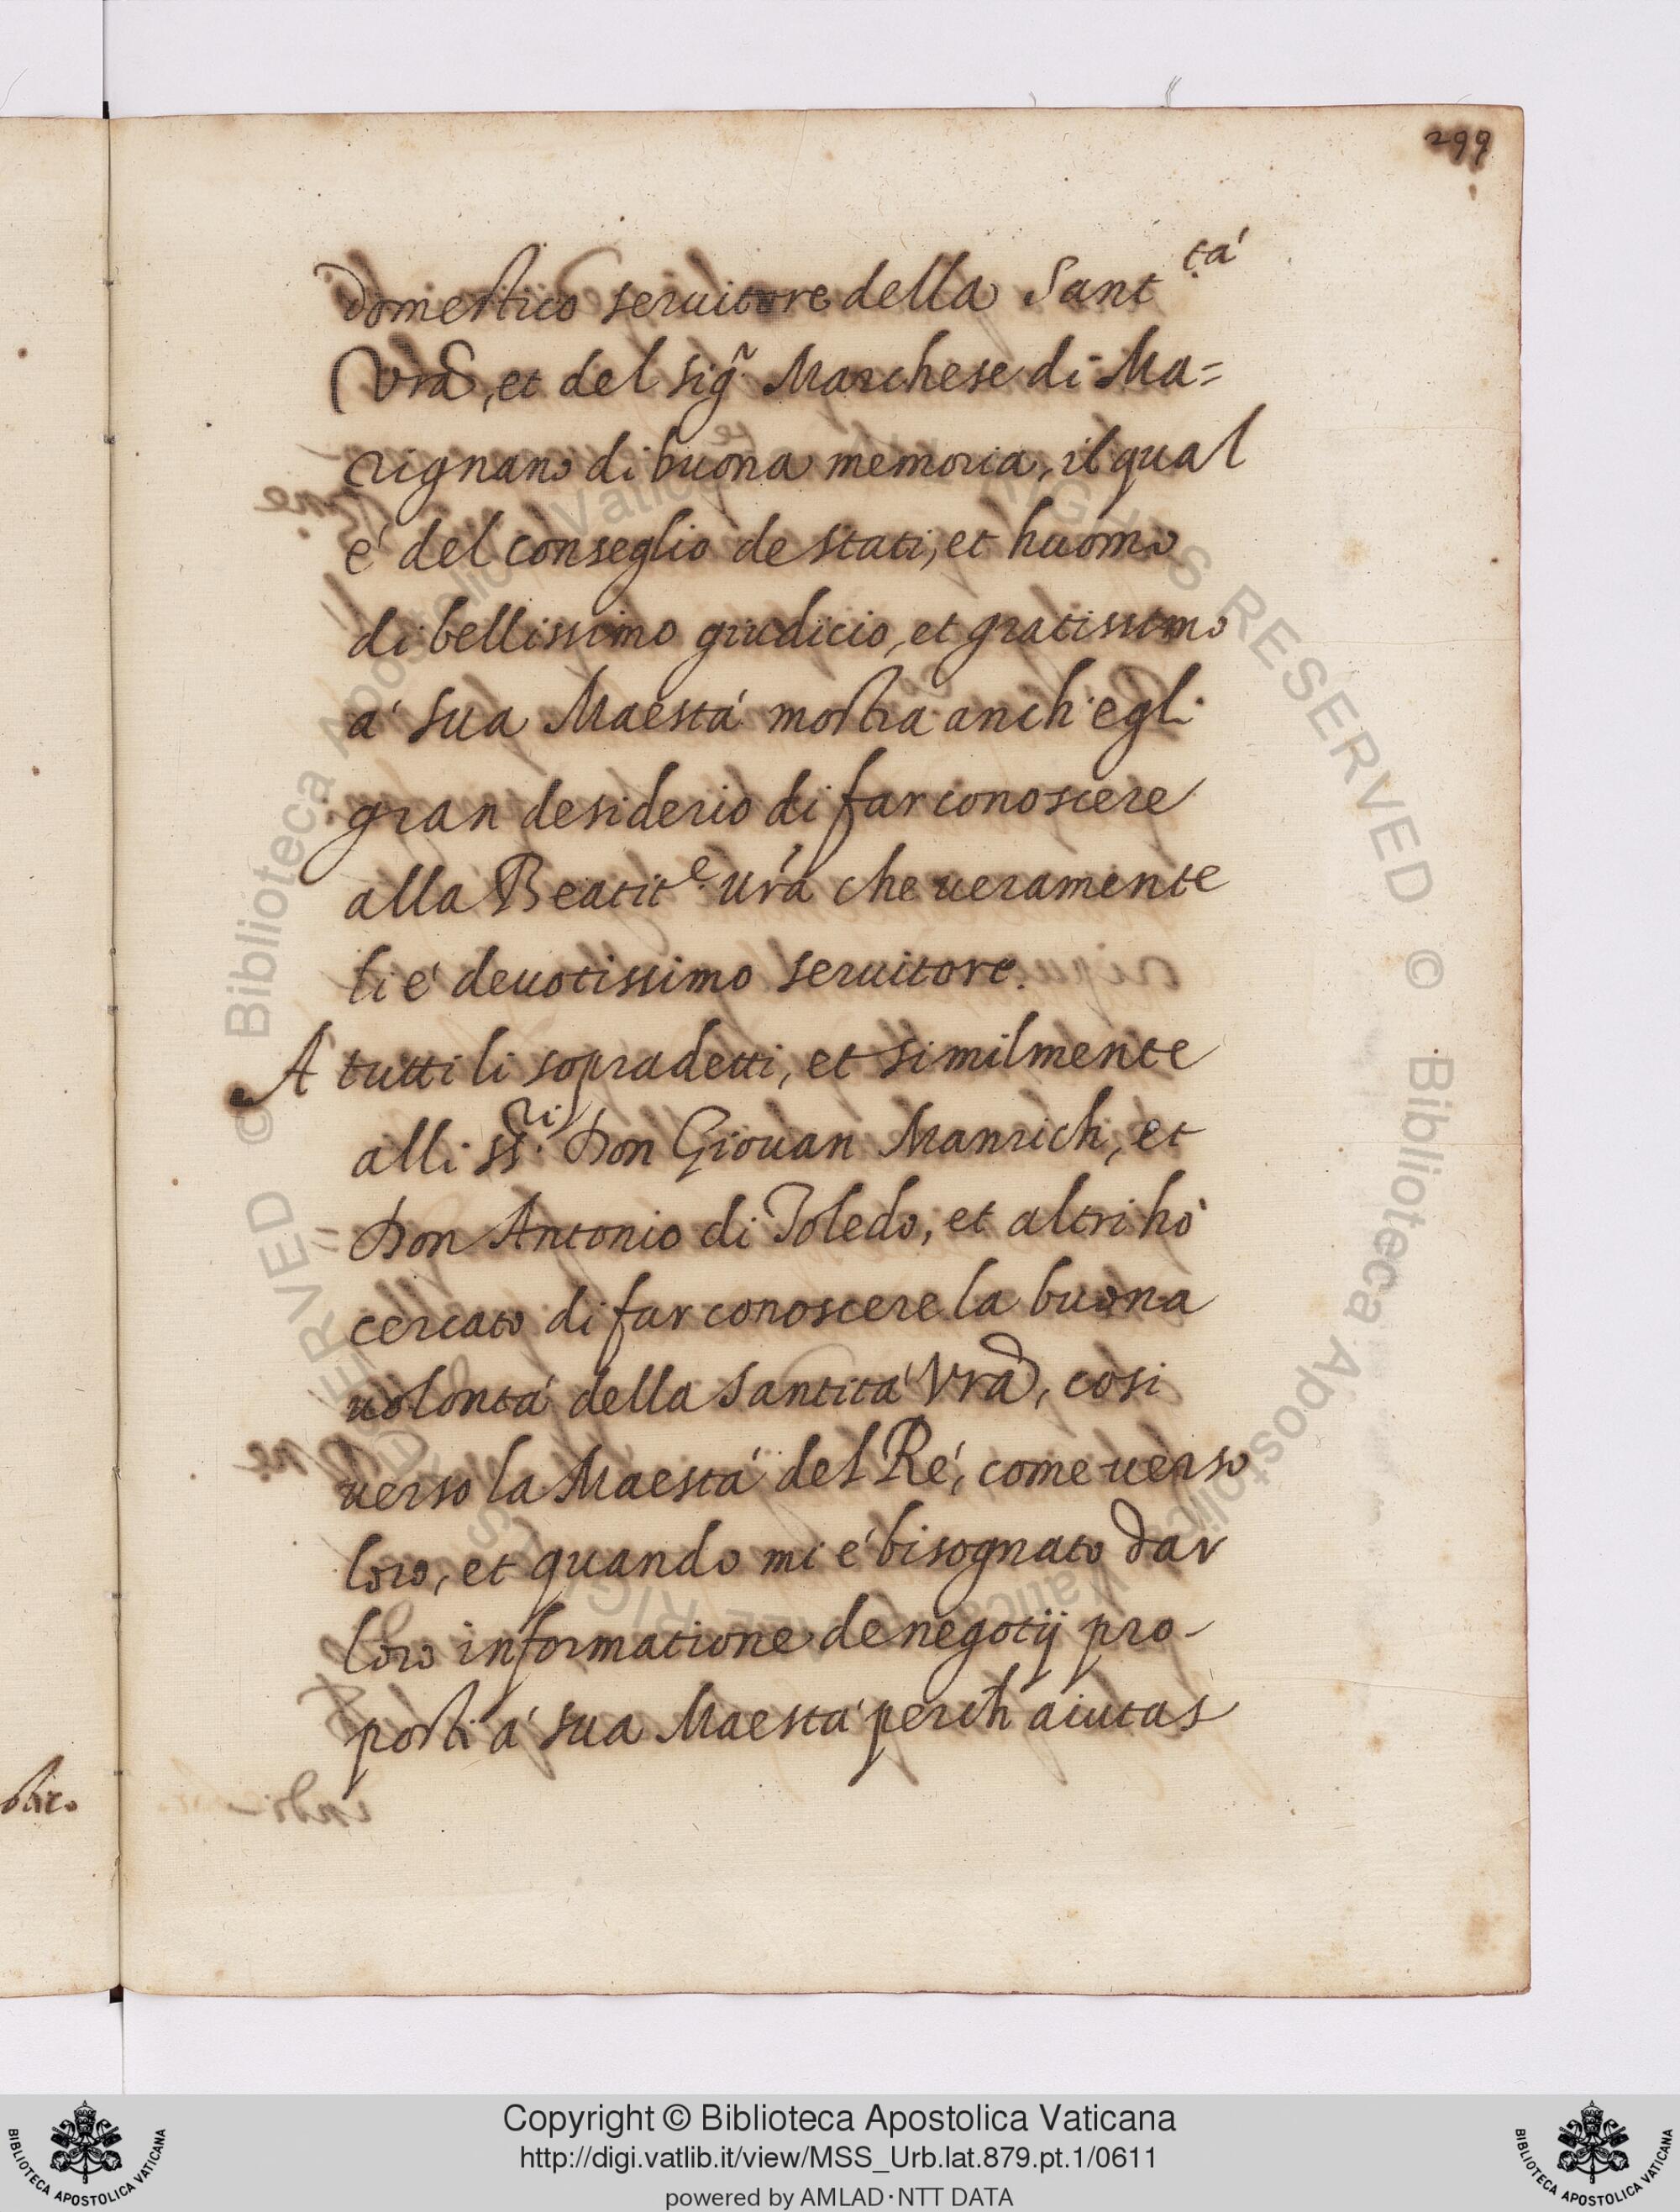 299
domestico seruitore della Sant.tá
Vrã, et del sig.r̃ Marchese di Ma=
rignano di buona memoria, il qual
é del conseglio de stati, et huomo
di bellissimo giudicio, et gratissimo
á sua Maestá mostra anch'egli
gran desiderio di far conoscere
alla Beatit.e ur̃a che ueramente
li é deuotissimo seruitore.
A tutti li sopradetti, et similmente
alli ss.ri Don Giouan Manrich, et
Don Antonio di Toledo, et altri hò
cercato di far conoscere la buona
uolontá della Santitá Vrã, cosi
uerso la Maestá del Ré, come uerso
loro, et quando mi é bisognato dar
loro informatione de negotij pro-
posti á sua Maestá perch aiutas
Copyright © Biblioteca Apostolica Vaticana
http://digi.vatlib.it/view/MSS_Urb.lat.879.pt.1/0611
powered by AMLAD·NTT DATA
BIBLIOTECA APOSTOLICA VATICANA
BIBLIOTECA APOSTOLICA VATICANA